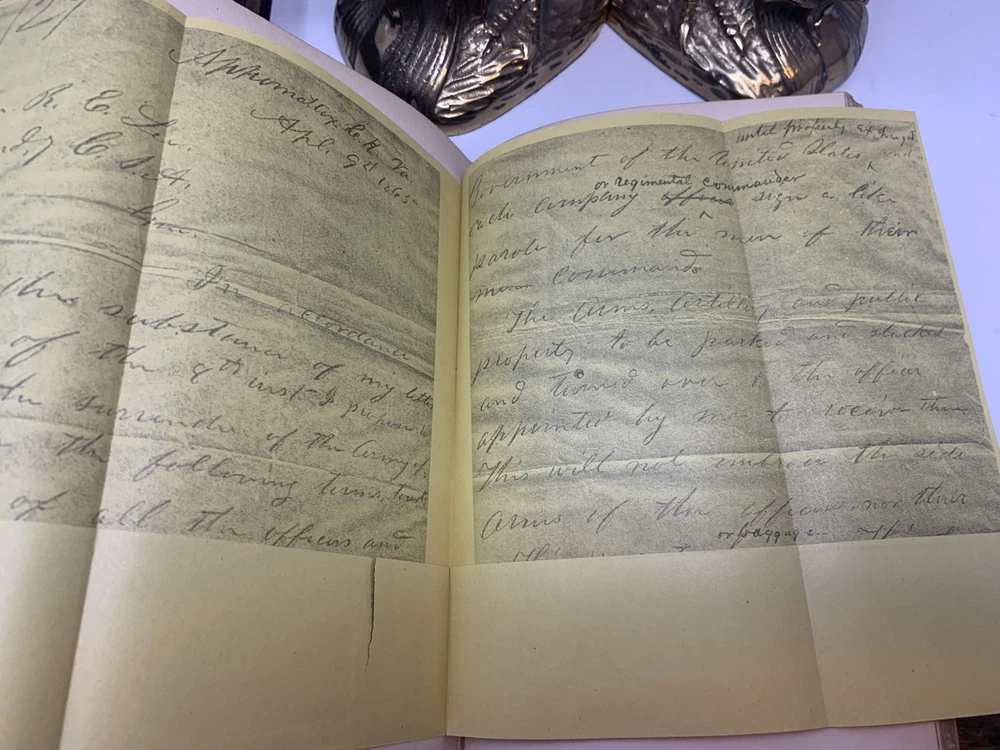 Appomattox C. H. Va.
Apl. 9th 1865
R. E.
C. S. A.
In accordance
substance of my letter
of the 8th inst. I propose to
surrender of the Army of
the following terms, to wit
of all the officers and
until properly exchanged
Government of the United States
or regimental commander
each company officer sign a like
parole for the men of their
commands
The Arms, Artillery and public
property to be parked and stacked
and turned over to the officer
appointed by me to receive them
This will not embrace the side
Arms of the officers, nor their
or baggage